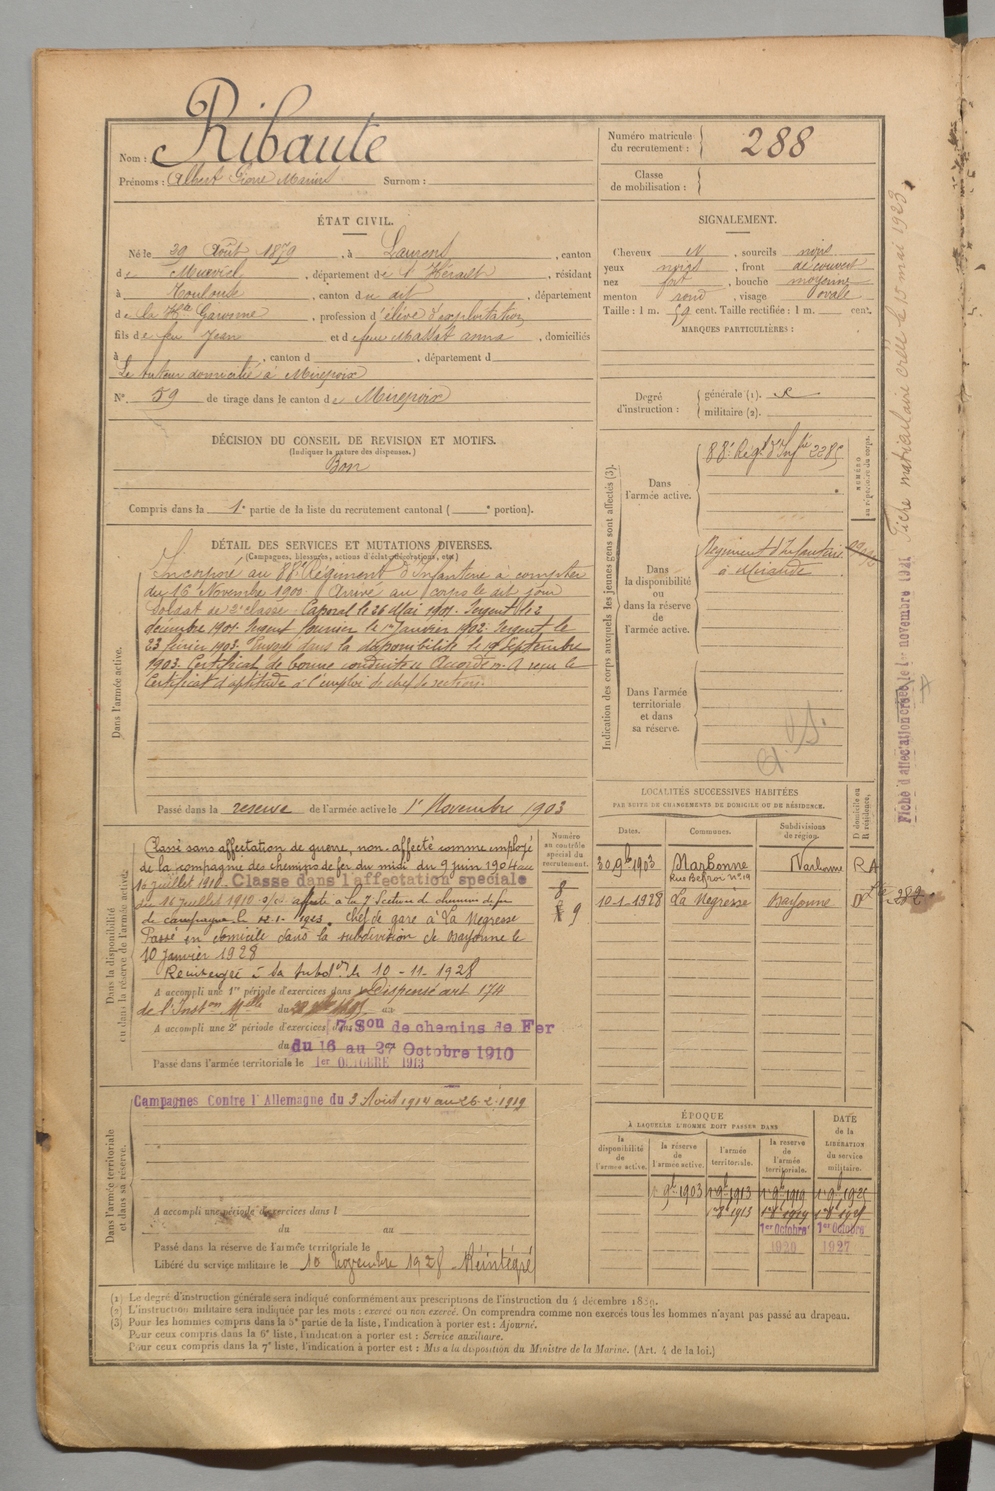 Nom : Ribaute
Prénoms : Albert Pierre Marius Surnom :
Numéro matricule du recrutement : 288
Classe de mobilisation :
ÉTAT CIVIL.
Né le 29 Août 1879, à Laurens, canton
de Murviel, département de l'Hérault, résidant
à Toulouse, canton du dit, département
de la Hte Garonne, profession d'élève d'exploitation
fils de feu Jean et de feue Massat anna, domiciliés
à , canton d , département d
Le tuteur domicilié à Mirepoix
N° 59 de tirage dans le canton de Mirepoix
SIGNALEMENT.
Cheveux N, sourcils noirs
yeux noirs, front découvert
nez fort, bouche moyenne
menton rond, visage ovale
Taille : 1 m. 59 cent. Taille rectifiée : 1 m. cent.
MARQUES PARTICULIÈRES :
Degré d'instruction : générale (1).
militaire (2).
DÉCISION DU CONSEIL DE REVISION ET MOTIFS.
(Indiquer la nature des dispenses.)
Bon
Compris dans la 1e partie de la liste du recrutement cantonal ( e portion).
DÉTAIL DES SERVICES ET MUTATIONS DIVERSES.
(Campagnes, blessures, actions d'éclat, décorations, etc.)
Dans l'armée active.
Incorporé au 88e Régiment d'Infanterie à compter
du 16 Novembre 1900. Arrivé au corps le dit jour
Soldat de 2e classe. Caporal le 26 Mai 1901. Sergent le 2
décembre 1901. Sergent fourrier le 1er Janvier 1902. Sergent le
23 février 1903. Envoyé dans la disponibilité le 19 Septembre
1903. Certificat de bonne conduite "Accordé". A reçu le
Certificat d'aptitude à l'emploi de chef de section.
Passé dans la reserve de l'armée active le 1er Novembre 1903
Indication des corps auxquels les jeunes gens sont affectés (3).
NUMÉRO au répertoire du corps.
Dans l'armée active.
88e Régt d'Infie 2285
Dans la disponibilité ou dans la réserve de l'armée active.
Régiment d'Infanterie
à Mirande
Dans l'armée territoriale et dans sa réserve.
Fiche matriculaire créée le 15 mai 1923.
Fiche d'affectation créée le 1er novembre 1921
LOCALITÉS SUCCESSIVES HABITÉES
PAR SUITE DE CHANGEMENTS DE DOMICILE OU DE RÉSIDENCE.
D domicile ou R résidence.
Dates. Communes. Subdivisions de région.
30 9bre 1903 Narbonne Narbonne R A
Rue Belfort n° 19
10-1-1928 La Negresse Bayonne D
Dans la disponibilité ou dans la réserve de l'armée active.
Numéro au contrôle spécial du recrutement.
Classé sans affectation de guerre, non-affecté comme employé
de la compagnie des chemins de fer du midi du 9 juin 1904 au
15 juillet 1910. Classe dans l'affectation speciale
du 16 juillet 1910 affecté à la 7e Section de chemin de fer
de campagne le 12-1-1923. Chef de gare à La Negresse
Passé en domicile dans la subdivision de Bayonne le
10 janvier 1928
Réintégré à sa subdon le 10-11-1928
A accompli une 1re période d'exercices dans Dispensé art 174
de l'Inston Mlle du au
A accompli une 2e période d'exercices dans 7e Son de chemins de Fer
du du 16 au 27 Octobre 1910
Passé dans l'armée territoriale le 1er OCTOBRE 1913
Dans l'armée territoriale et dans sa réserve.
Campagnes Contre l'Allemagne du 3 Août 1914 au 26-2-1919
A accompli une période d'exercices dans l
du au
Passé dans la réserve de l'armée territoriale le
Libéré du service militaire le 10 Novembre 1928 - Réintégré
ÉPOQUE
À LAQUELLE L'HOMME DOIT PASSER DANS
DATE de la LIBÉRATION du service militaire.
la disponibilité de l'armée active. la réserve de l'armée active. l'armée territoriale. la réserve de l'armée territoriale.
1er 9bre 1903 1er 9bre 1913 1er 9bre 1919 1er 9bre 1925
1er 8bre 1913 1er 8bre 1919
1er Octobre 1920 1er Octobre 1927
(1) Le degré d'instruction générale sera indiqué conformément aux prescriptions de l'instruction du 4 décembre 1889.
(2) L'instruction militaire sera indiquée par les mots : exercé ou non exercé. On comprendra comme non exercés tous les hommes n'ayant pas passé au drapeau.
(3) Pour les hommes compris dans la 5e partie de la liste, l'indication à porter est : Ajourné.
Pour ceux compris dans la 6e liste, l'indication à porter est : Service auxiliaire.
Pour ceux compris dans la 7e liste, l'indication à porter est : Mis à la disposition du Ministre de la Marine. (Art. 4 de la loi.)